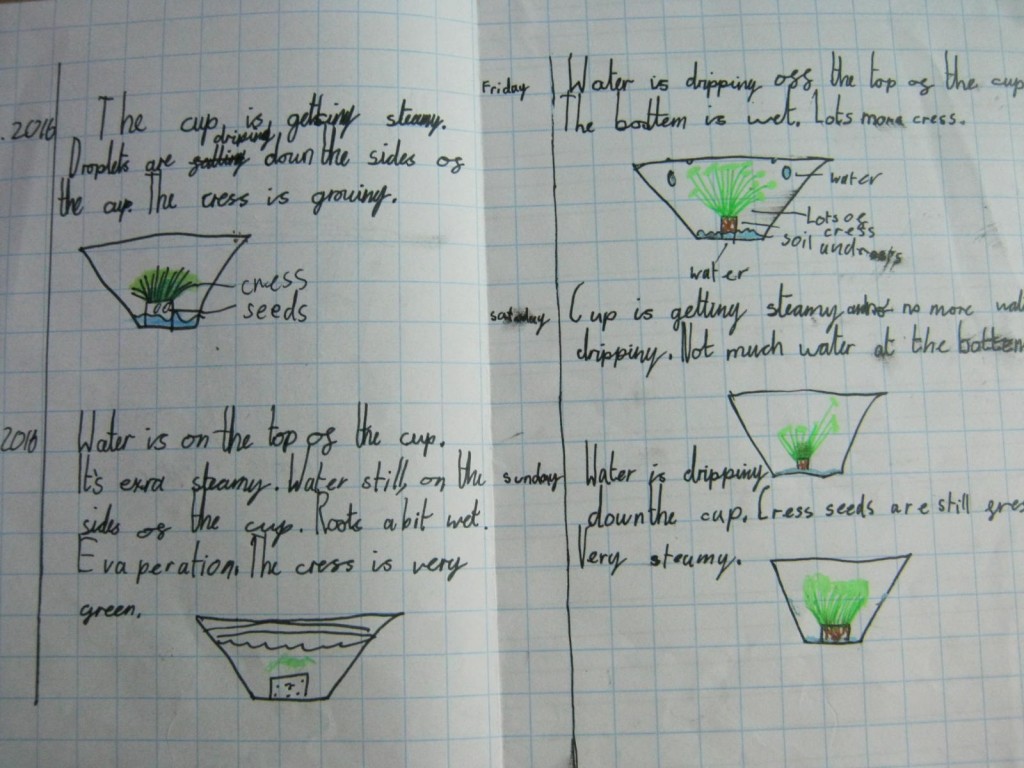 . 2016
The cup is getting steamy.
driping
Droplets are down the sides of
the cup. The cress is growing.
cress
seeds
2016
Water is on the top of the cup.
It's exra steamy. Water still on the
sides of the cup. Roots a bit wet.
Evaperation. The cress is very
green.
Friday
Water is dripping off the top of the cup
The bottem is wet. Lots more cress.
water
Lots of
cress
soil and roots
water
Saturday
Cup is getting steamy no more
dripping. Not much water at the bottem
sunday
Water is dripping
down the cup. Cress seeds are still
Very steamy.